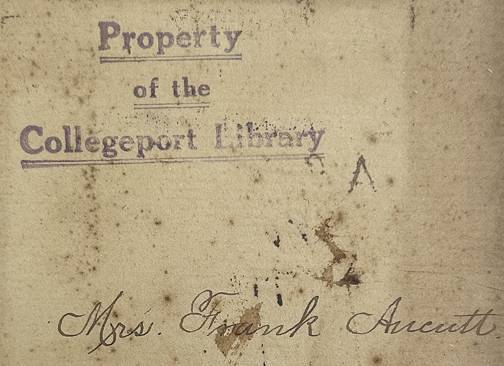 Property
of the
Collegeport Library
A
Mrs. Frank Aucutt.